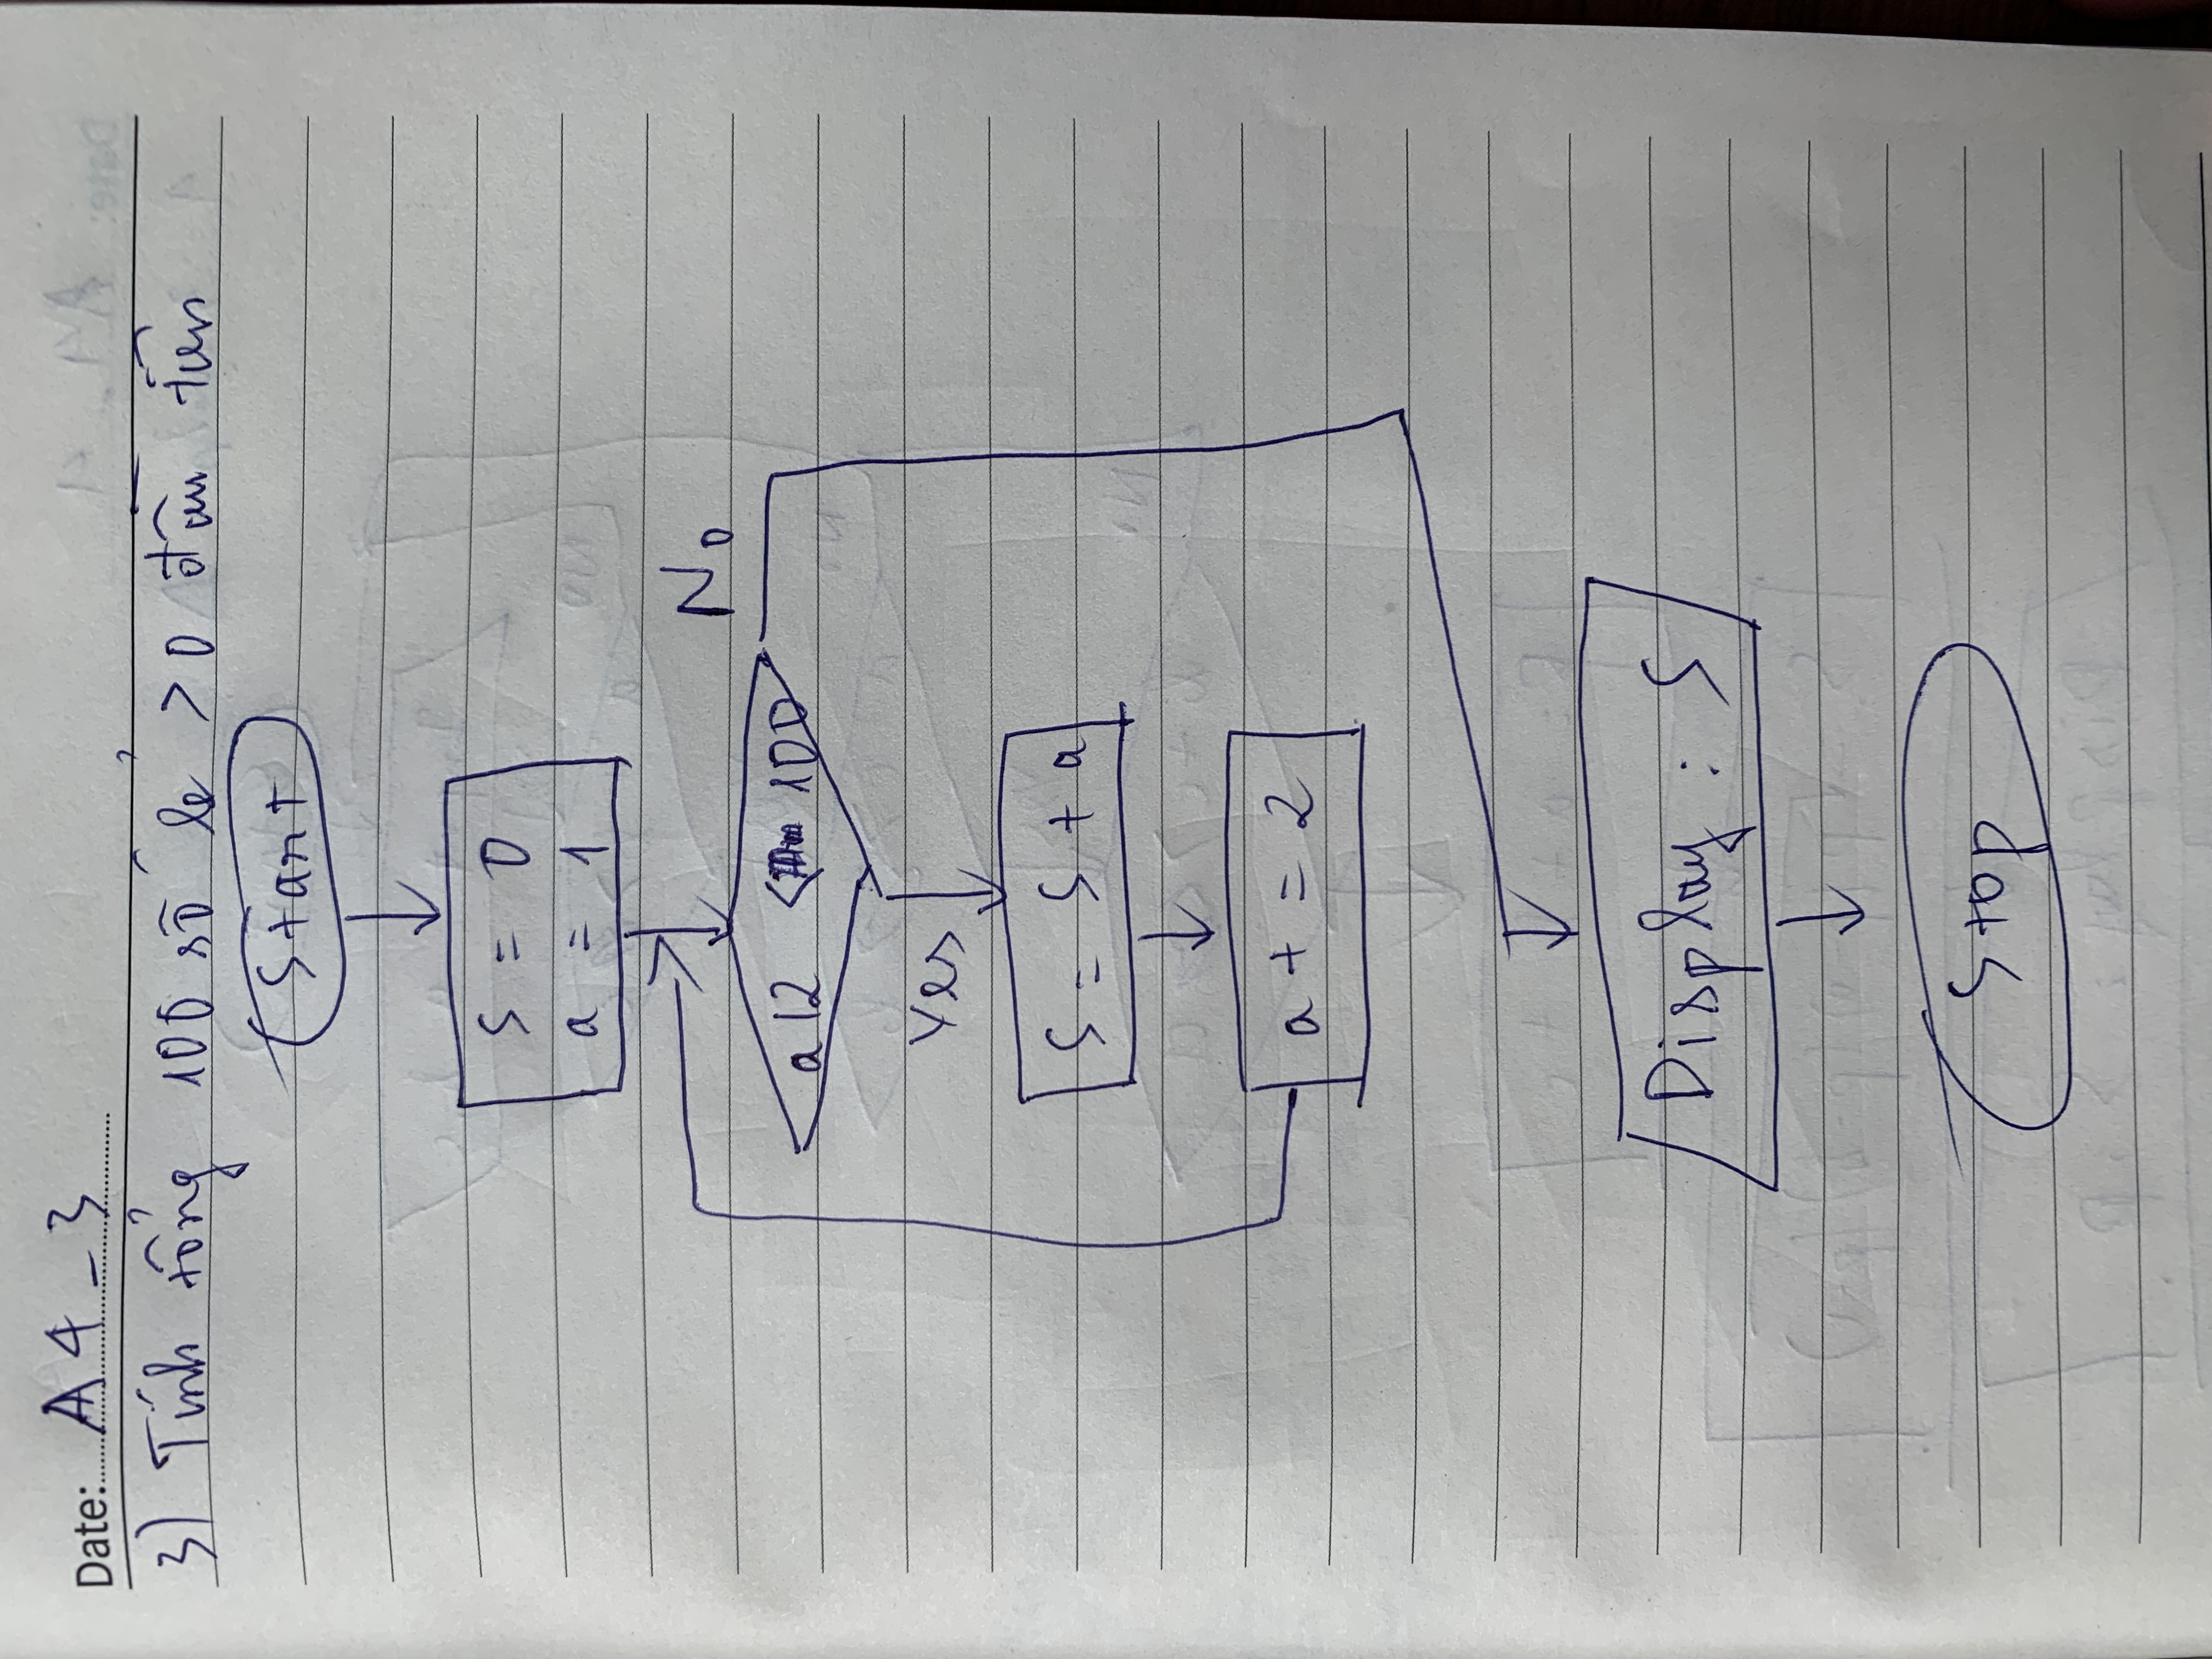 Date: A4-3
3) Tính tổng 100 số lẻ > 0 đầu tiên
Start
S = 0
a = 1
No
a/2 < 100
Yes
S = S + a
a + = 2
Display : S
Stop